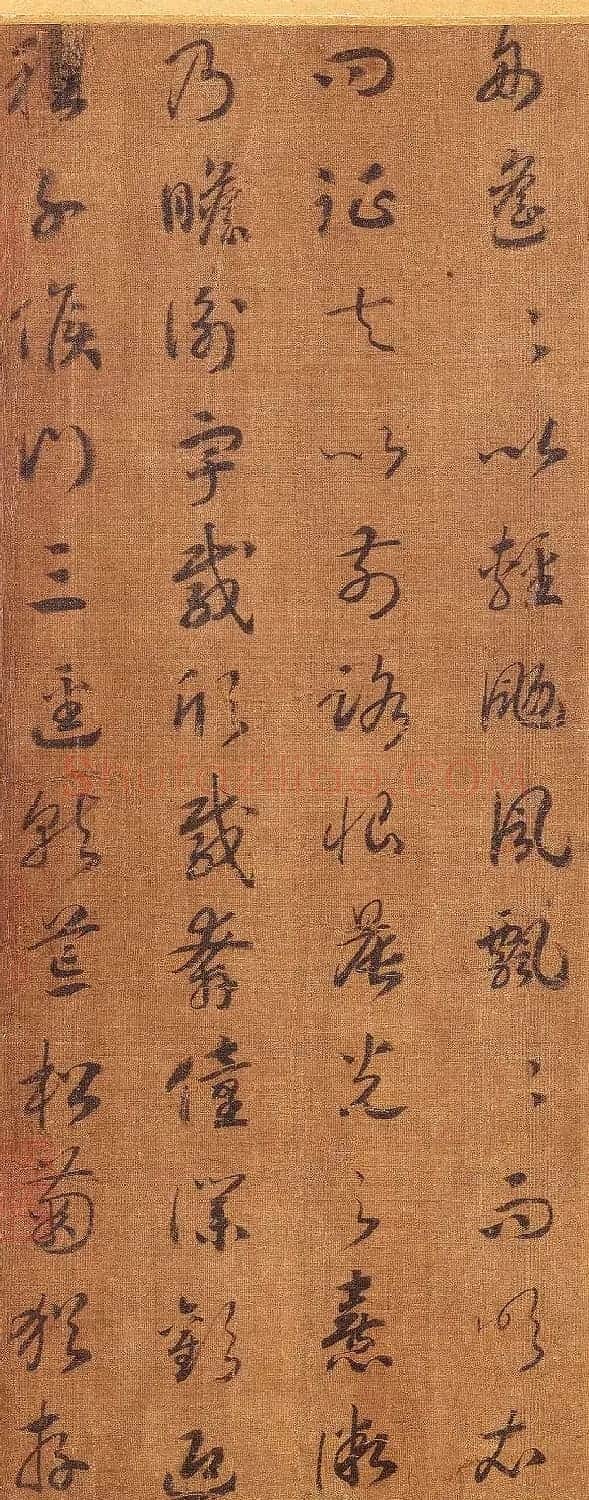 舟遙〻以輕颺風飄〻而吹衣
問征夫以前路恨晨光之熹微
乃瞻衡宇載欣載奔僮僕歡迎
稚子候門三逕就荒松菊猶存